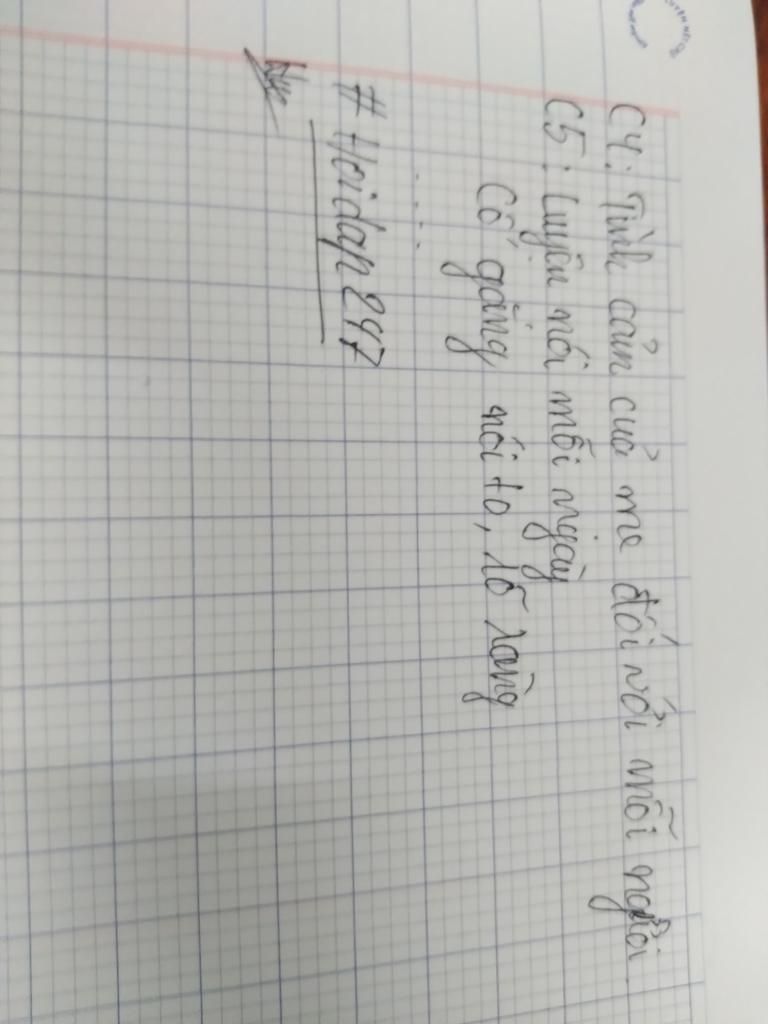 C4: Tình cảm của mẹ đối với mỗi người
C5: Luyện nói mỗi ngày
Cố gắng nói to, rõ ràng
....
# Hoidap247